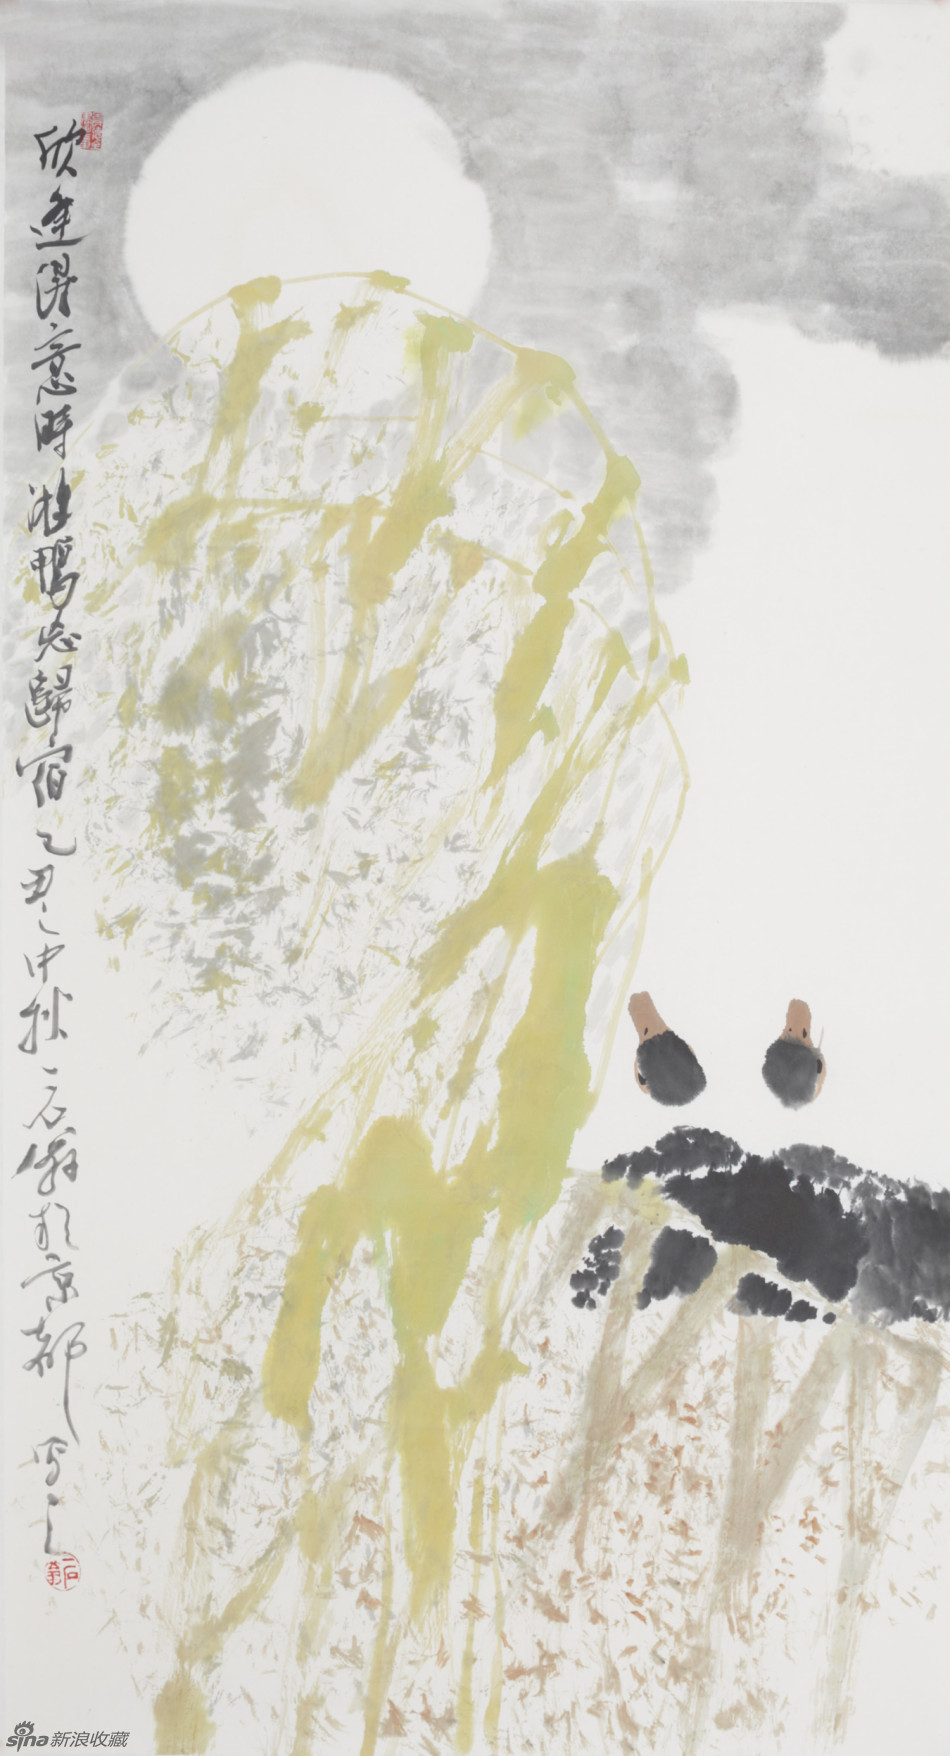 欣逢得意時鴨忘歸宿己丑之中秋二石翁於京都寫之
二石翁
sina新浪收藏